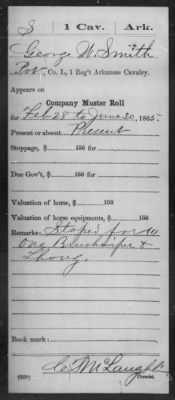 S | 1 Cav. | Ark.
George W. Smith
Pvt, Co. L, 1 Reg't Arkansas Cavalry.
Appears on
Company Muster Roll
for Feb 28 to June 30, 1865.
Present or absent, Present
Stoppage, $ 100 for
Due Gov't, $ 100 for
Valuation of horse, $ 100
Valuation of horse equipments, $ 100
Remarks: Stoped for
One Brush &
Thong.
Book mark:
McLaughlin
(358) Copyist.